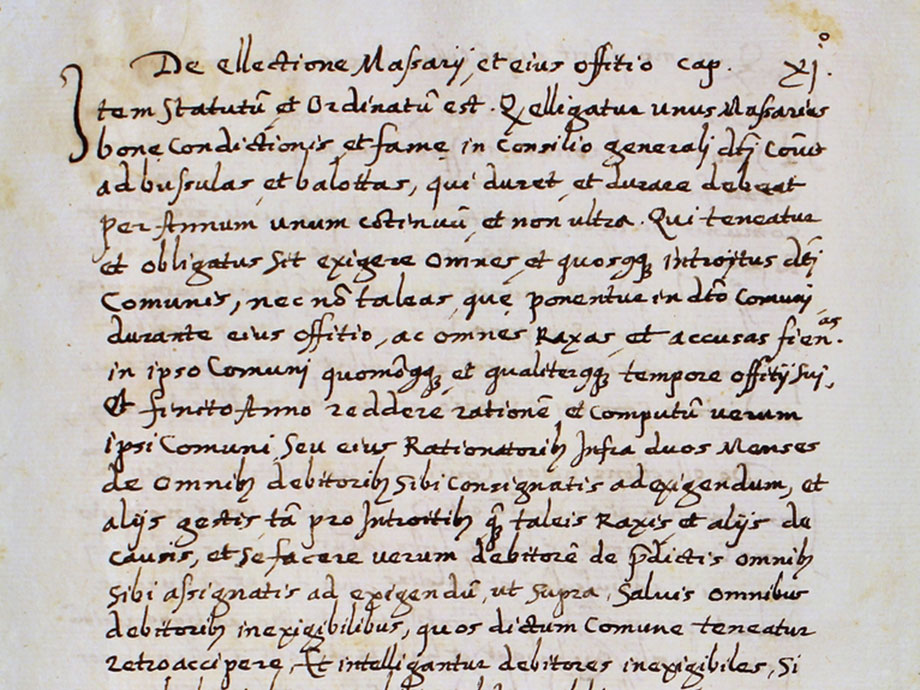 De ellectione Massarij, et eius offitio cap. XIº.
Item Statutū et Ordinatū est. Q elligatur unus Massarius
bonę Condictionis, et famę in Consilio generali dti Cōis
ad bussulas et balottas, qui duret, et durare debeat
per Annum unum cōtinuū, et non ultra. Qui teneatur
et obligatus sit exigere Omnes, et quosqq introjtus dti
Comunis, nec nō taleas, quę ponentur in dto Comuni,
durante eius offitio, ac omnes Raxas, et accusas fien.as
in ipso Comuni quomōqq, et qualiterqq tempore offitij sui,
Et finito Anno reddere rationē et Computū verum
ipsi Comuni, Seu eius Rationatorib Infra duos Menses
de Omnib debitorib Sibi Consignatis ad exigendum, et
alijs gestis tā pro Introitib q̄ taleis Raxis, et alijs de
Causis, et Se facere verum debitorē de p̄dictis omnib
Sibi assignatis ad exigendū, ut Supra, Salvis omnibus
debitorib inexigibilibus, quos dictum Comune teneatur
retroaccipere, Et intelligantur debitores inexigibiles, Si